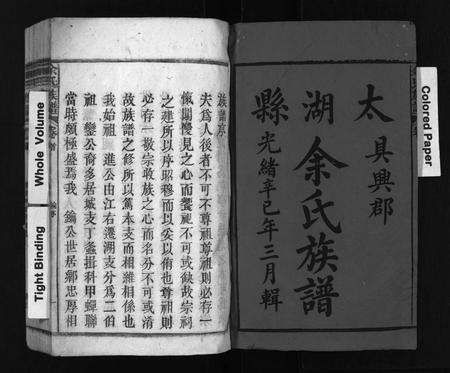 太
湖
縣
具興郡
余氏族譜
光緒辛巳年三月輯
族譜序
夫爲人後者不可不尊祖尊祖則必存一
之建所以序昭穆而以妥以侑也尊祖則
必存一敬宗收族之心而名分不可或淆
故族譜之修所以篤本支而相維相係也
我始祖 進公由江右遷湖支分爲二伯
祖 鑾公裔多居城支丁蕃揖科甲蟬聯
當時頗極盛焉我 鑰公世居鄉忠厚相
Colored Paper
Whole Volume
Tight Binding